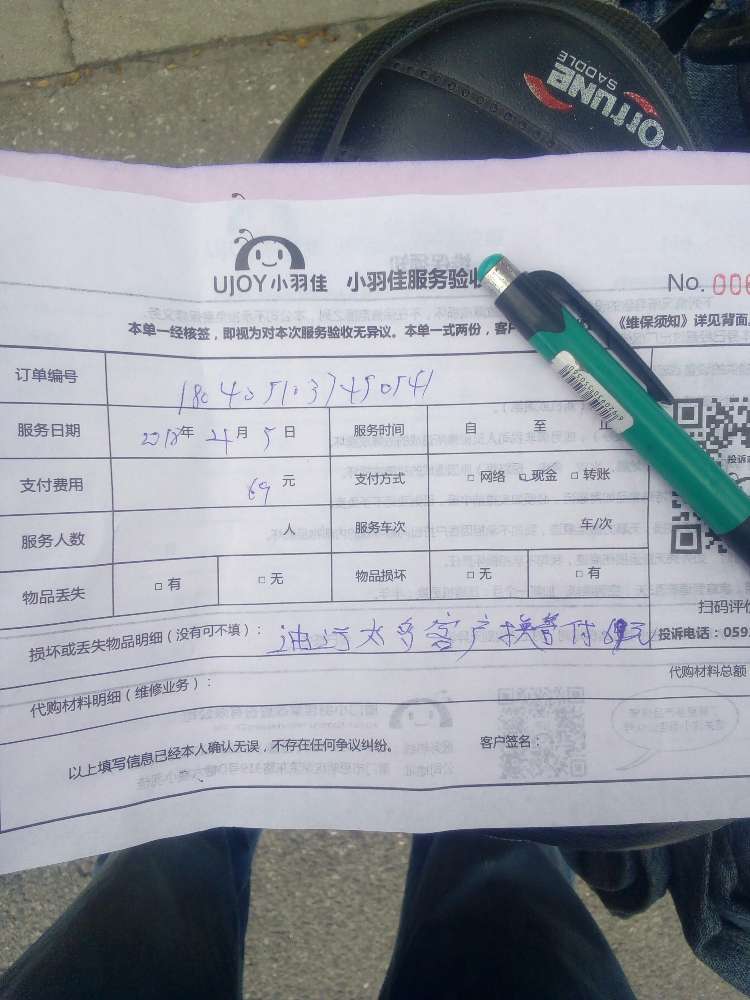 Fortune
SADDLE
UJOY小羽佳 小羽佳服务验收
No. 006
本单一经核签，即视为对本次服务验收无异议。本单一式两份，客户 《维保须知》详见背面。
订单编号 1804051037450541
服务日期 2018年 4月 5日 服务时间 自 至 止
支付费用 69元 支付方式 □ 网络 □ 现金 □ 转账
服务人数 人 服务车次 车/次
物品丢失 □ 有 □ 无 物品损坏 □ 无 □ 有
扫码评价
损坏或丢失物品明细（没有可不填）： 油污太多客户 付69元 投诉电话：0592
代购材料明细（维修业务）： 代购材料总额
以上填写信息已经本人确认无误，不存在任何争议纠纷。 客户签名：